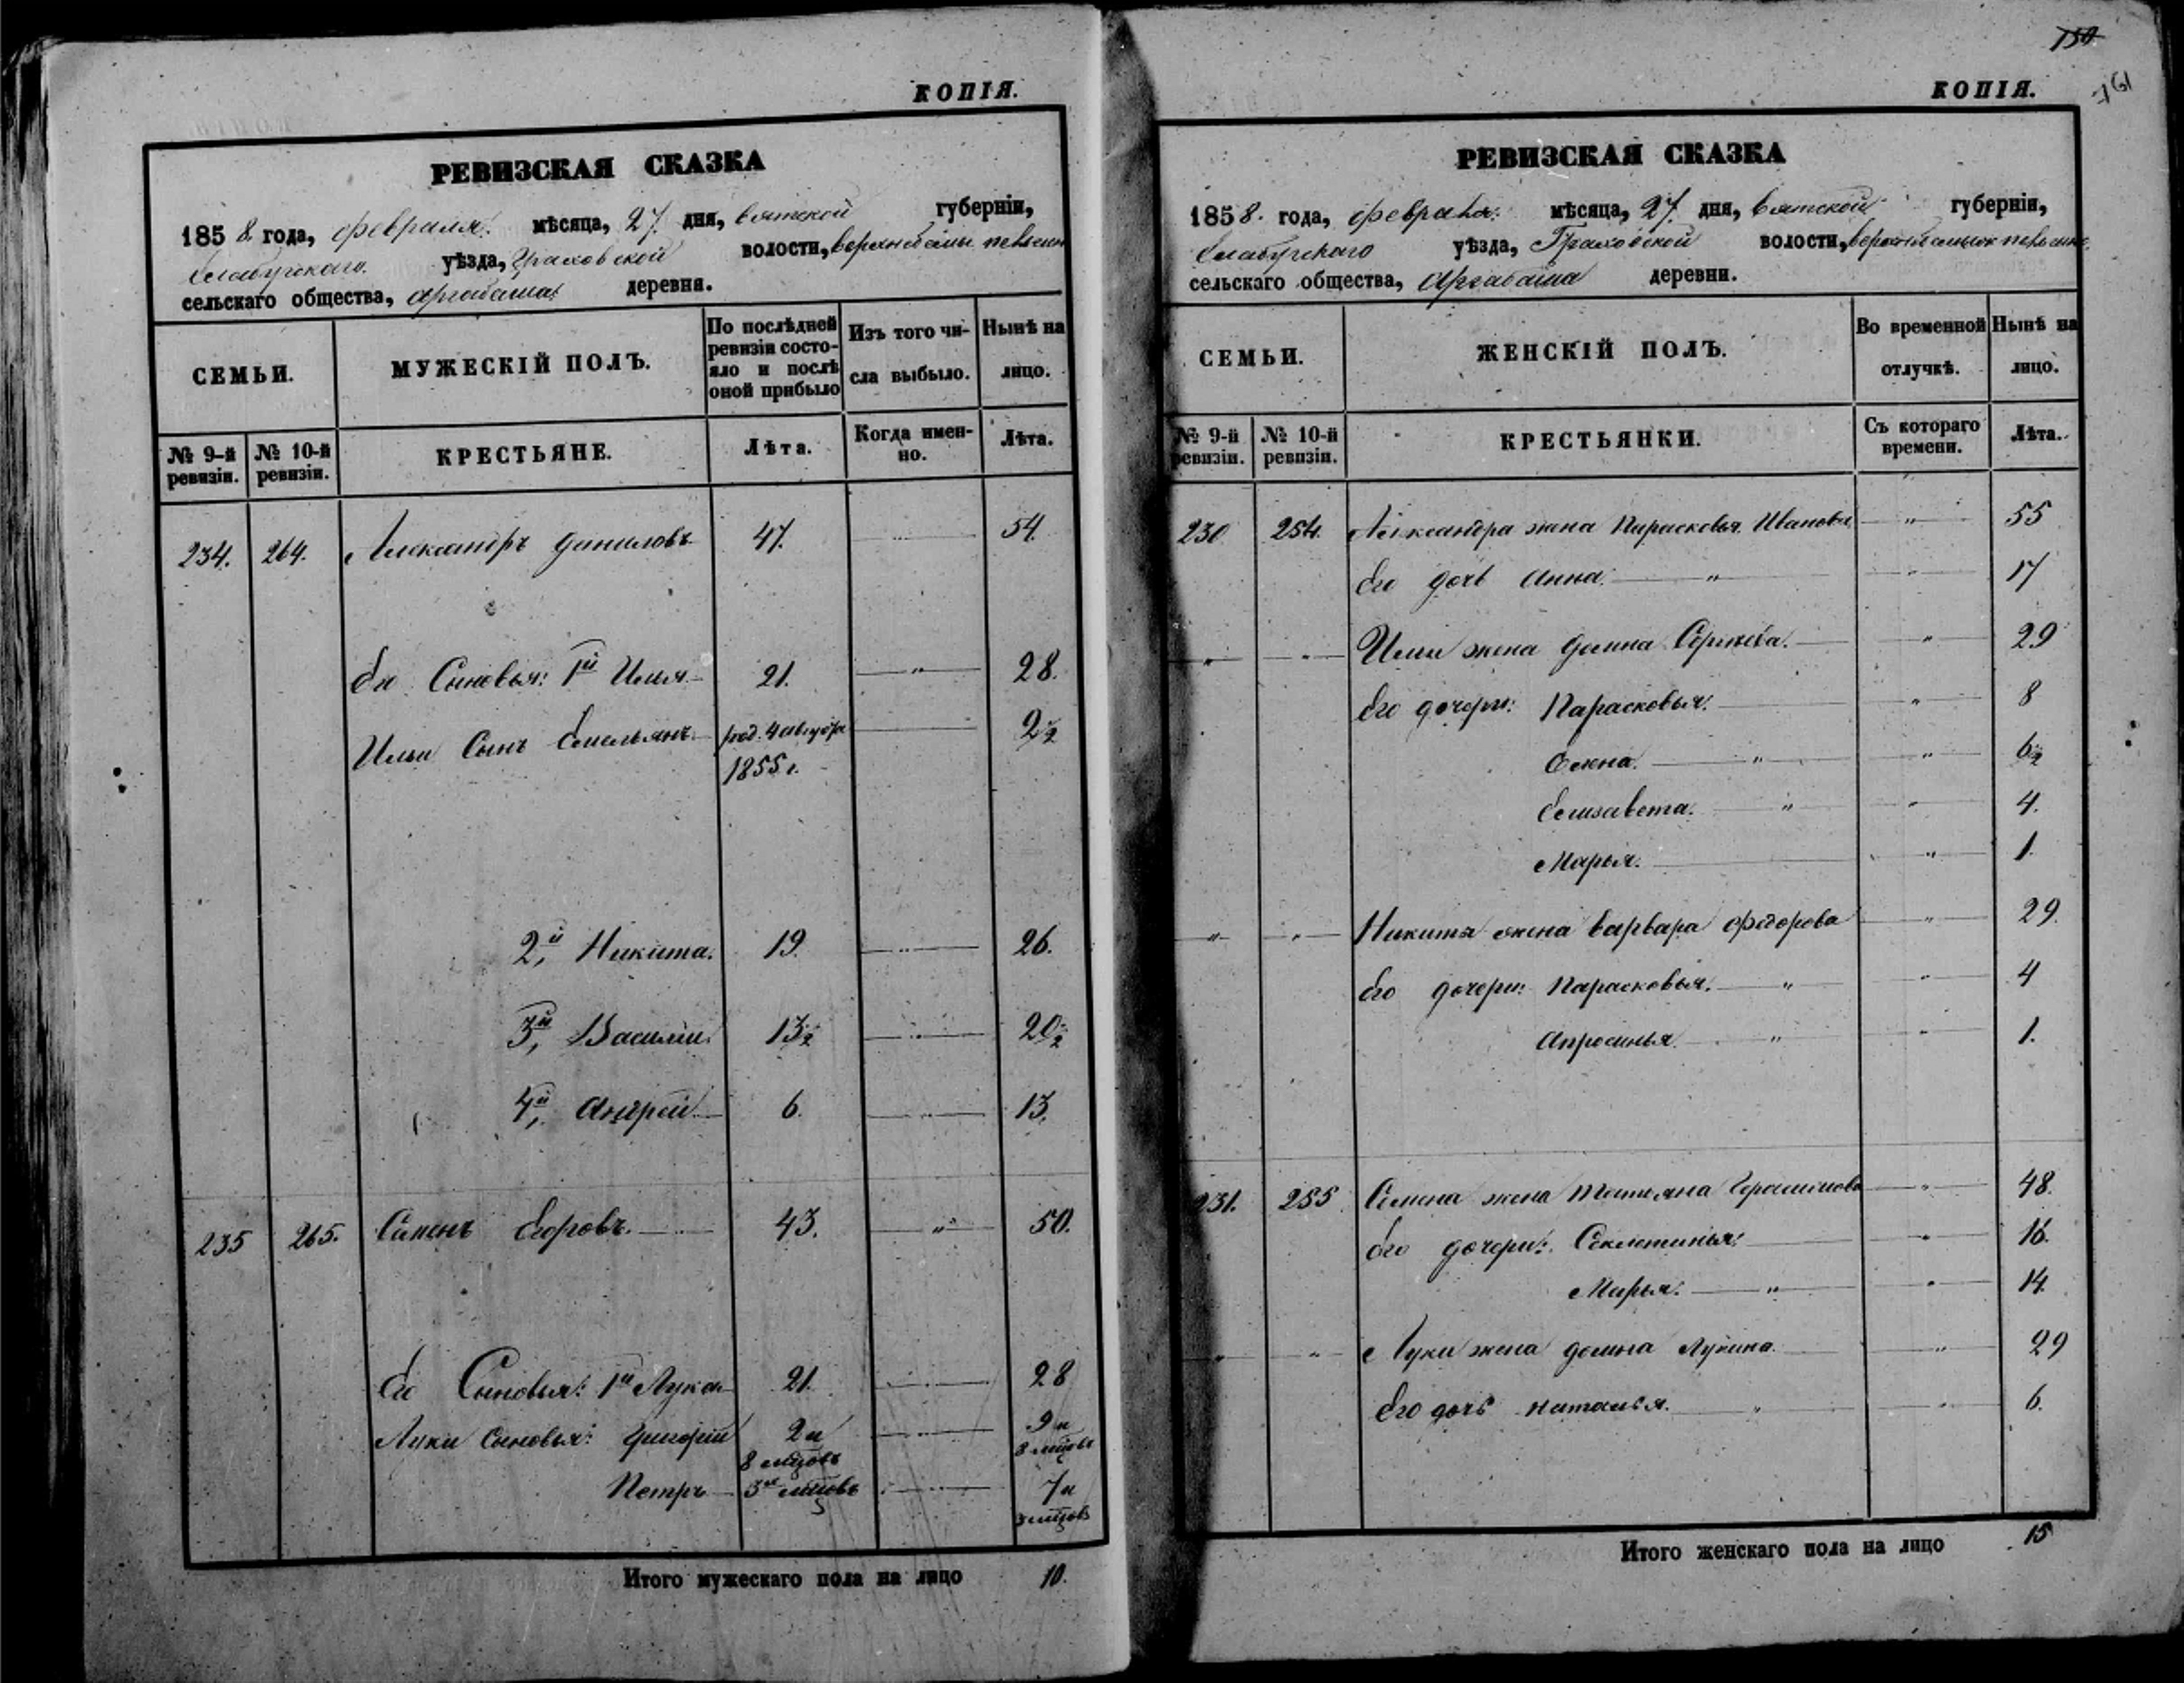 КОПІЯ.
РЕВИЗСКАЯ СКАЗКА
1858. года, февраля. мѣсяца, 27. дня, вятской губерніи,
елабужскаго. уѣзда, Граховской волости,
сельскаго общества, аргабаша деревня.
СЕМЬИ.
МУЖЕСКІЙ ПОЛЪ.
По послѣдней
ревизіи состо-
яло и послѣ
оной прибыло
Изъ того чи-
сла выбыло.
Нынѣ на
лицо.
№ 9-й
ревизіи.
№ 10-й
ревизіи.
КРЕСТЬЯНЕ.
Лѣта.
Когда имен-
но.
Лѣта.
234. 264. Александръ даниловъ 47. 54.
Его Сыновья: 1й Илья 21. " 28.
Ильи Сынъ Емельянъ род. 4 августа 2½
1855 г.
2й, Никита. 19. 26.
3й, Василии. 13½ 20½
4й, Андрей 6. 13.
235 265. Семенъ Егоровъ. 43. " 50.
Его Сыновья: 1й Лука 21. 28
Луки Сыновья: Григорій 2 и 9 и
8 мцовъ 8 мцовъ
Петръ 3 мцовъ 7 и
3 мцовъ
Итого мужескаго пола на лицо 10.
150
161
КОПІЯ.
РЕВИЗСКАЯ СКАЗКА
1858. года, февраля. мѣсяца, 27. дня, Вятской губерніи,
Елабужскаго уѣзда, Граховской волости,
сельскаго общества, Аргабаша деревни.
СЕМЬИ.
ЖЕНСКІЙ ПОЛЪ.
Во временной
отлучкѣ.
Нынѣ на
лицо.
№ 9-й
ревизіи.
№ 10-й
ревизіи.
КРЕСТЬЯНКИ.
Съ котораго
времени.
Лѣта.
230 254. Александра жена Парасковья Иванова " 55
Его дочь Анна. " " 17
" " Ильи жена домна Сергѣева. " 29
Его дочери: Парасковья. " 8
Елена. " " 6½
Елизавета. " " 4.
Марья. " 1.
" " Никиты жена варвара федорова " 29.
Его дочери: Парасковья. " " 4
Апросинья " " 1.
231. 255 Семена жена Татьяна Герасимова " 48.
Его дочери: Секлетинья. " 16.
Марья. " " 14.
" " Луки жена домна Лукина. " 29
Его дочь наталья. " " 6.
Итого женскаго пола на лицо 15